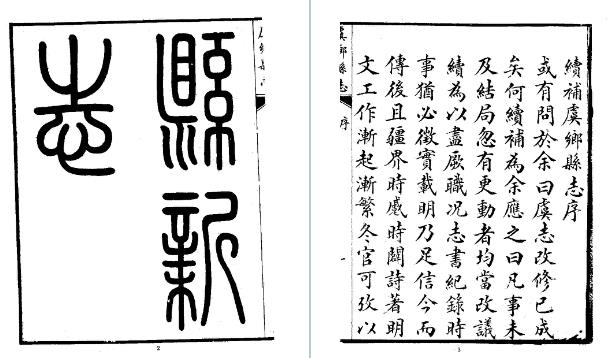 縣新
志
2
續補虞鄉縣志序
或有問於余曰虞志改修已成
矣何續補為余應之曰凡事未
及結局忽有更動者均當改議
續為以盡厥職况志書紀錄時
事猶必徵實載明乃足信今而
傳後且疆界時蹙時闢詩著明
文工作漸起漸繁冬官可攷以
虞鄉縣志 序
3